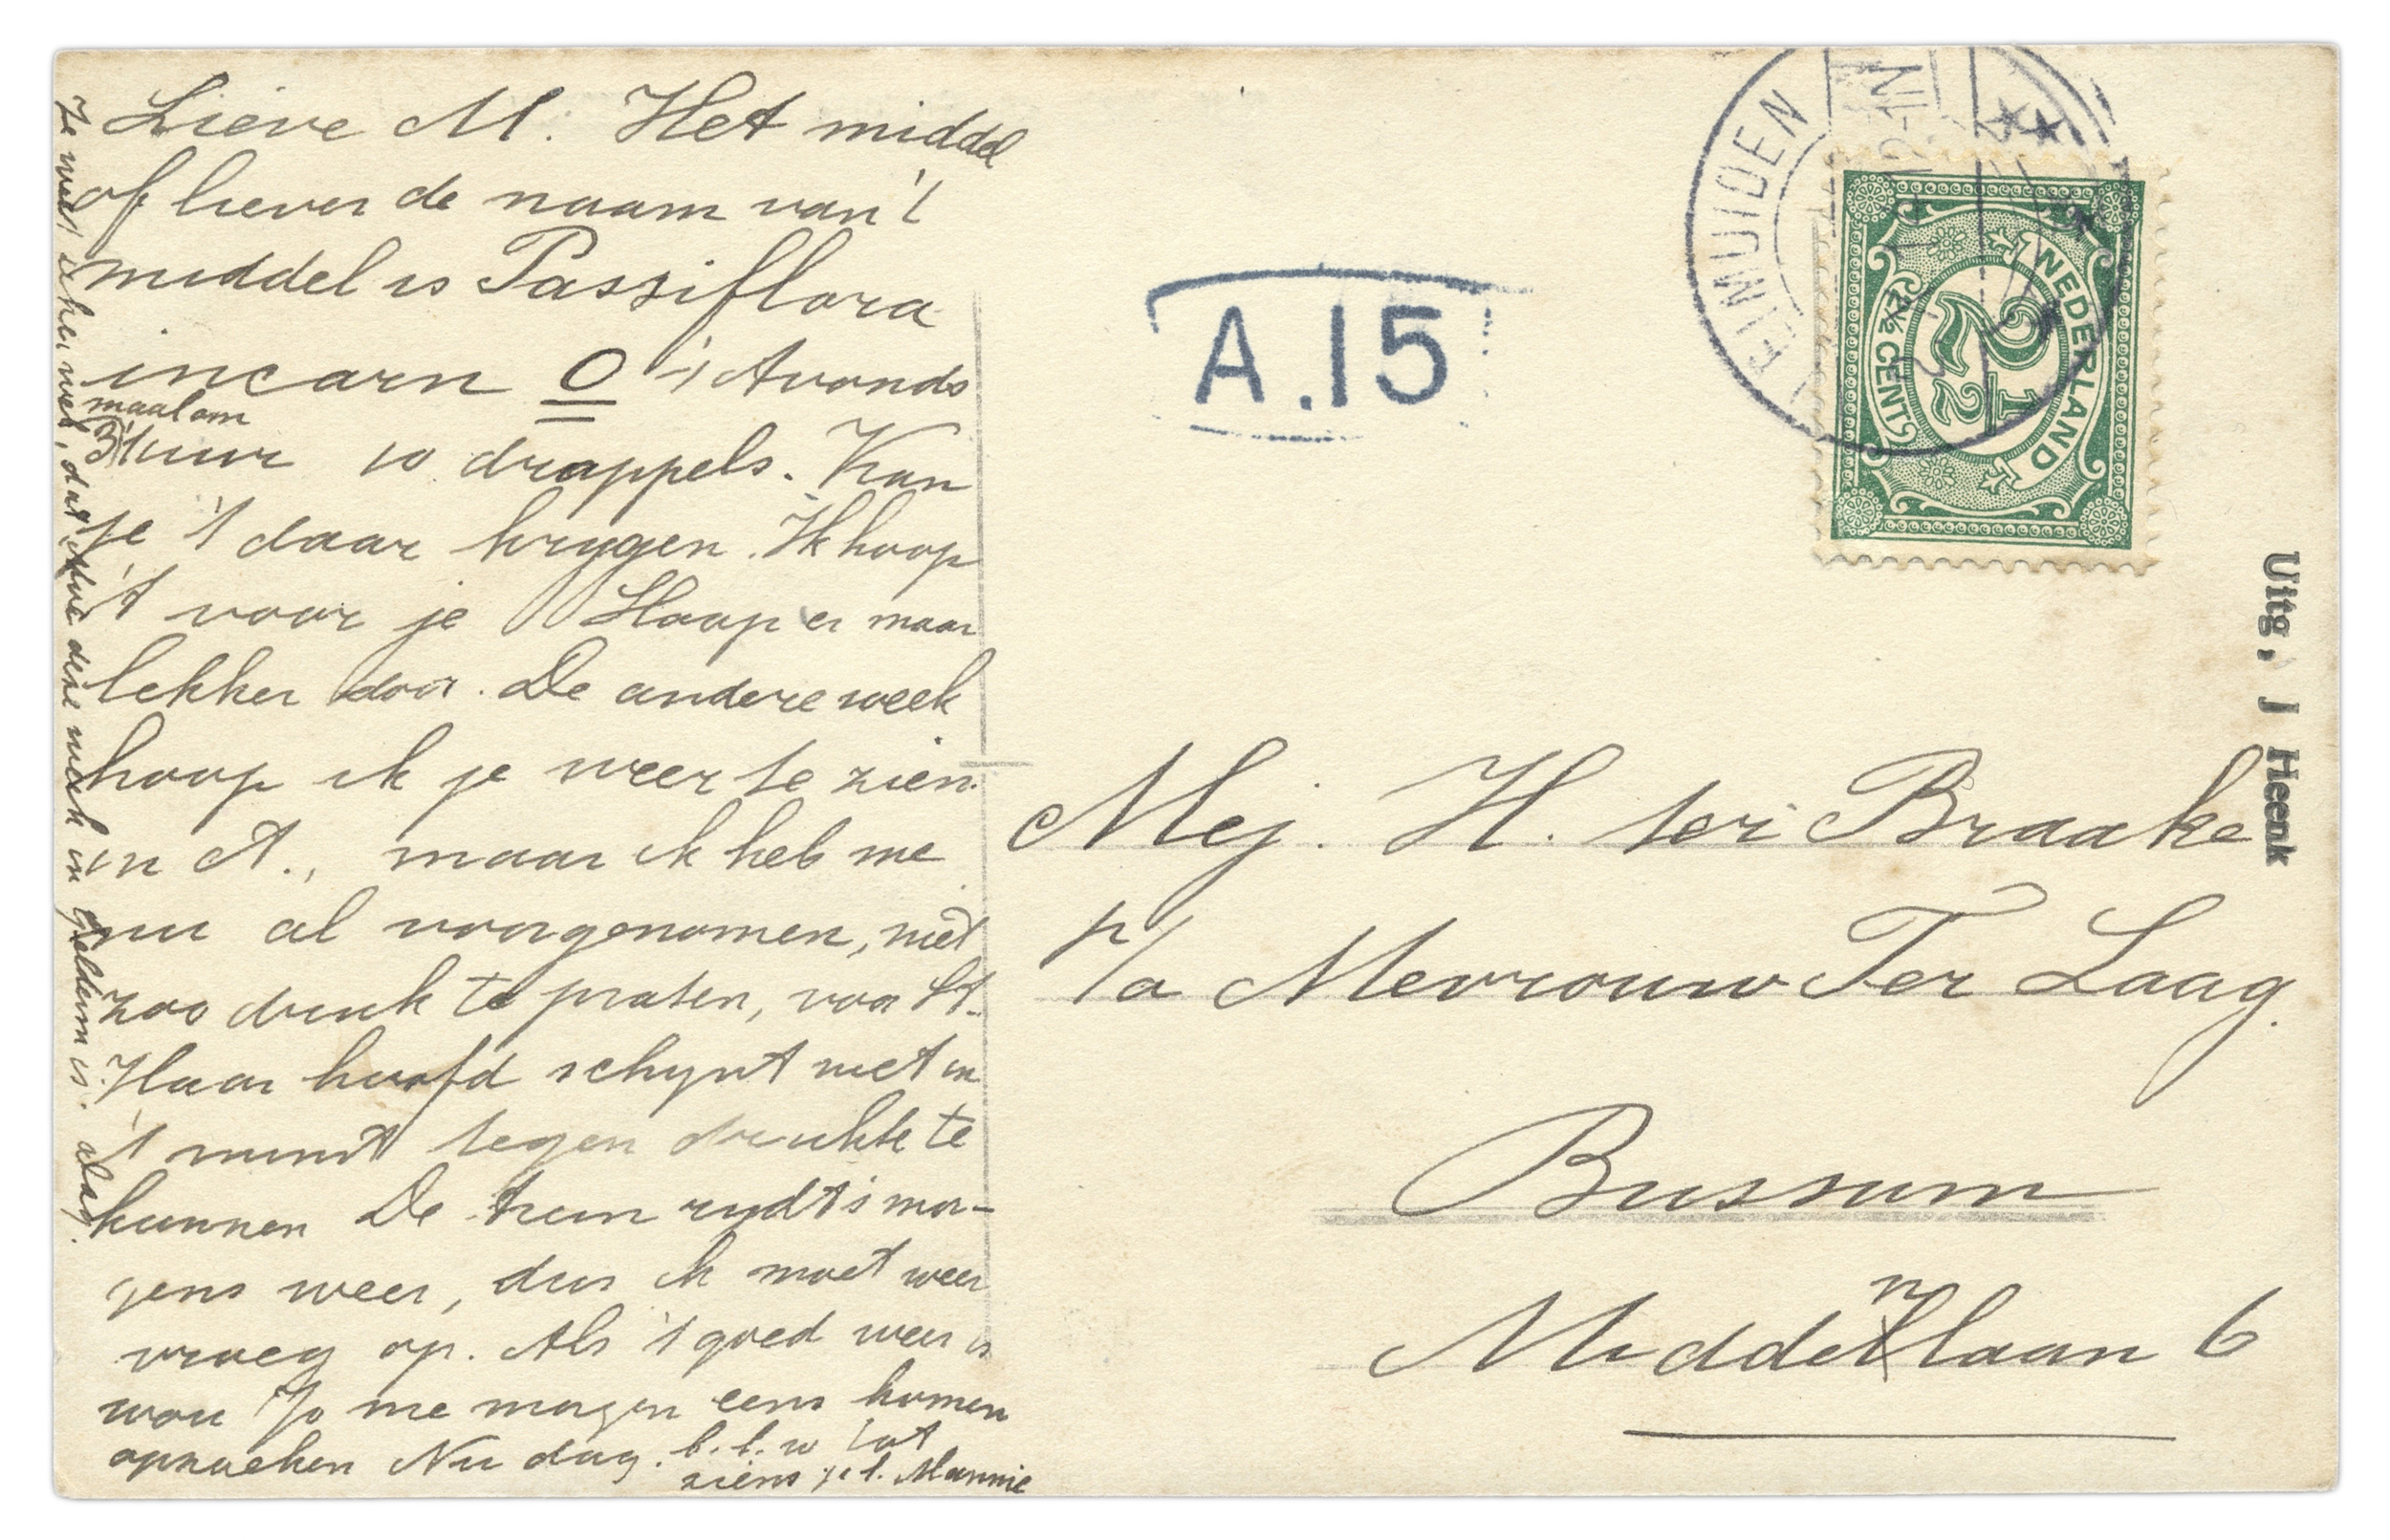 Lieve M. Het middel
of liever de naam van 't
middel is Passiflora
incarn O 's Avonds
maal om
3 1 uur 10 droppels. Kan
je 't daar krygen. Ik hoop
't voor je Slaap er maar
lekker door. De andere week
hoop ik je weer te zien.
in A., maar ik heb me
nu al voorgenomen, niet
zoo druk te praten, voor A.
Haar hoofd schynt niet in
't minst tegen drukte te
kunnen De trein rydt 's mor-
gens weer, dus ik moet weer
vroeg op. Als 't goed weer is
wou Jo me morgen eens komen
opzoeken Nu dag. b.l.w tot
ziens je l. Mannie
Ze weet zeker wel, dat deze week in Geldern is. Dag.
A.15
VEIMUIDEN
NEDERLAND
2 1/2
2½ CENT
Uitg. J Heenk
Mej. H. ter Braake
p/a Mevrouw Ter Laag.
Bussum
n
Middellaan 6